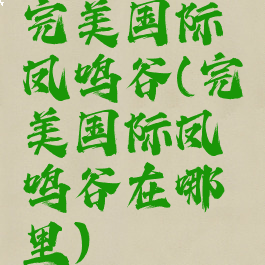 完美国际
凤鸣谷(完
美国际凤
鸣谷在哪
里)